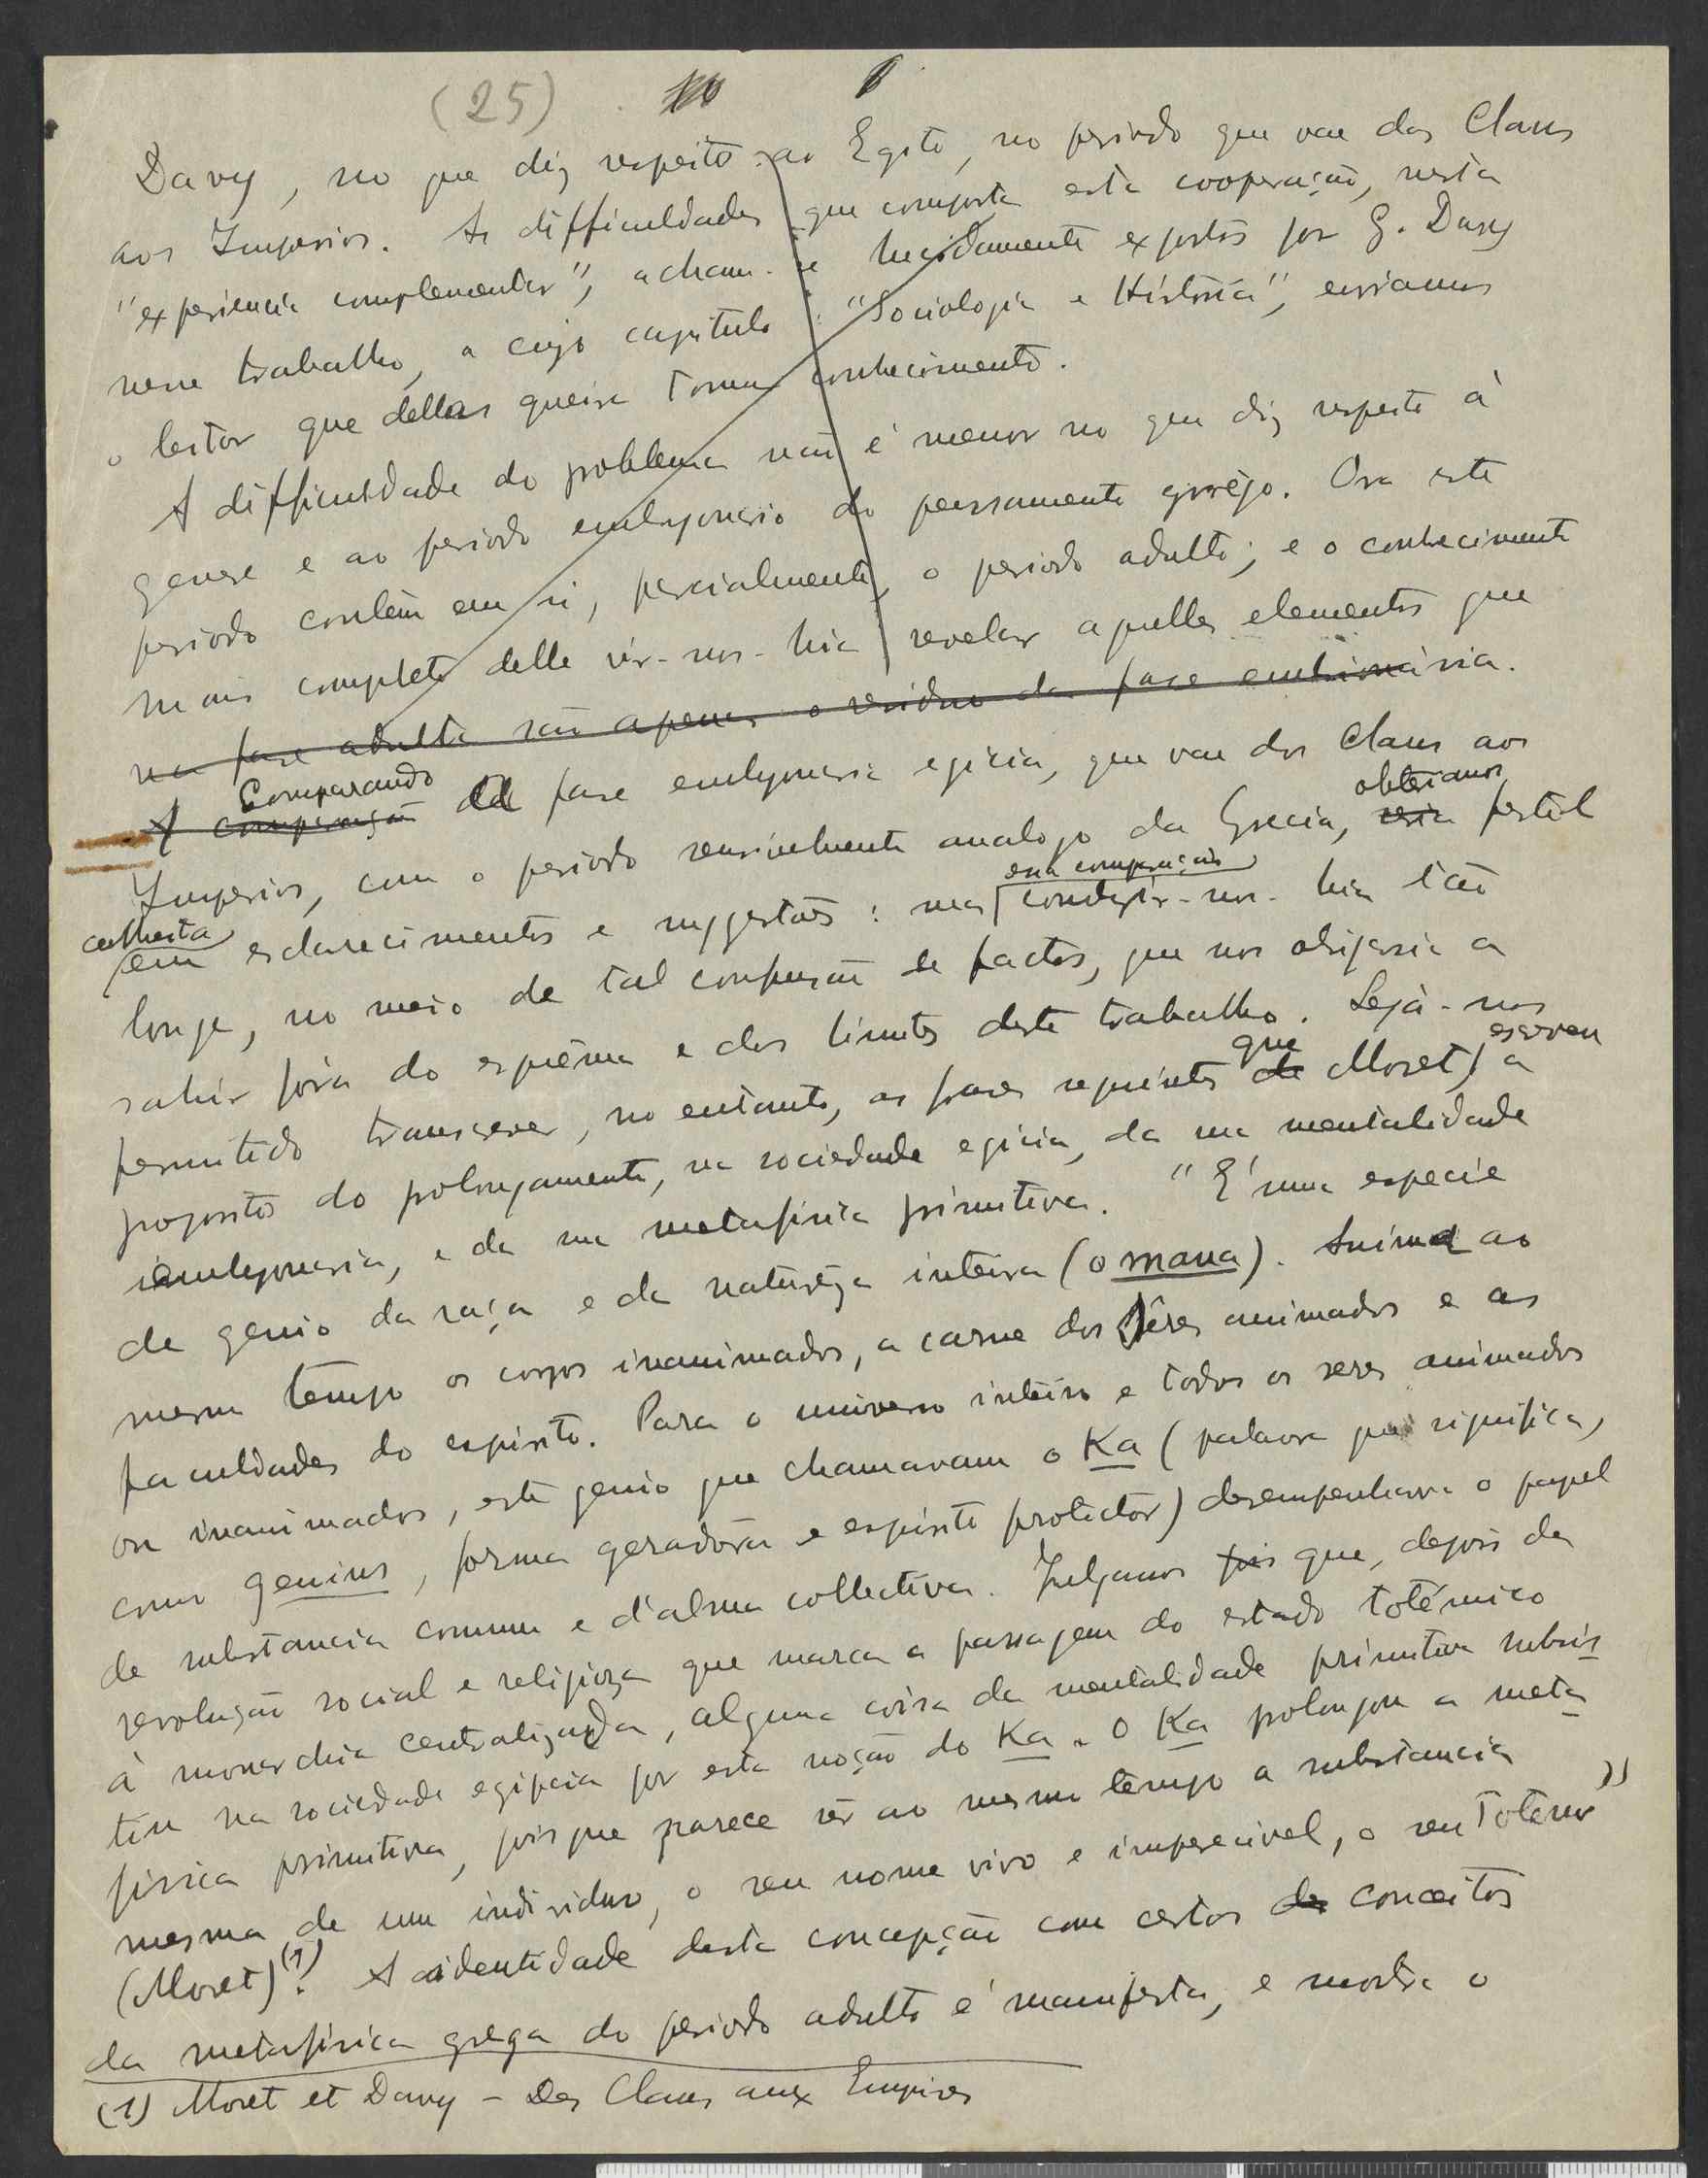 (25)
Davy, no que diz respeito ao Egito, no periodo que vae dos Clans
aos Imperios. As difficuldades que comporta esta cooperação, nesta
"experiencia complementar", acham-se lucidamente expostas por G. Davy
nesse trabalho, a cujo capitulo: "Sociologia e Historia", enviamos
o leitor que dellas queira tomar conhecimento.
A difficuldade do problema não é menor no que diz respeito á
genese e ao periodo embryonario do pensamento grêgo. Ora este
periodo contêm em si, parcialmente, o periodo adulto; e o conhecimento
mais completo delle vir-nos-hia revelar aquelles elementos que
na fase adulta são apenas o residuo da fase embrionária.
A comparação Comparando a fase embryonaria egicia, que vae dos Clans aos
Imperios, com o periodo sensivelmente analogo da Grecia, seria obteriamos fertil
colheita em esclarecimentos e suggestões: mas essa comparação conduzir-nos-hia tão
longe, no meio de tal confusão de factos, que nos obrigaria a
sahir fóra do esquêma e dos limites deste trabalho. Sejà-nos
permitido transcrever, no entanto, as frases seguintes de que Moret, escreveu a
proposito do prolongamento, na sociedade egicia, da sua mentalidade
embryonaria, e da sua metafisica primitiva. "E' uma especie
de genio da raça e da naturêza inteira (o mana). Anima ao
mesmo tempo os corpos inanimados, a carne dos sêres animados e as
faculdades do espirito. Para o universo inteiro e todos os seres animados
ou inanimados, este genio que chamavam o Ka (palavra que significa,
como genius, forma geradôra e espirito protector) desempenhava o papel
de substancia commum e d'alma collectiva. Julgamos pois que, depois da
revolução social e religioza que marca a passagem do estado totémico
á monarchia centralizada, alguma coisa da mentalidade primitiva subsis
tiu na sociedade egipcia por esta noção do Ka. O Ka prolongou a meta
fisica primitiva, pois que parece ser ao mesmo tempo a substancia
mesma de um individuo, o seu nome vivo e imperecivel, o seu Totem"
(Moret)(1). A identidade desta concepção com certos de conceitos
da metafisica grega do periodo adulto é manifesta, e mostra o
(1) Moret et Davy – Des Clans aux Empires